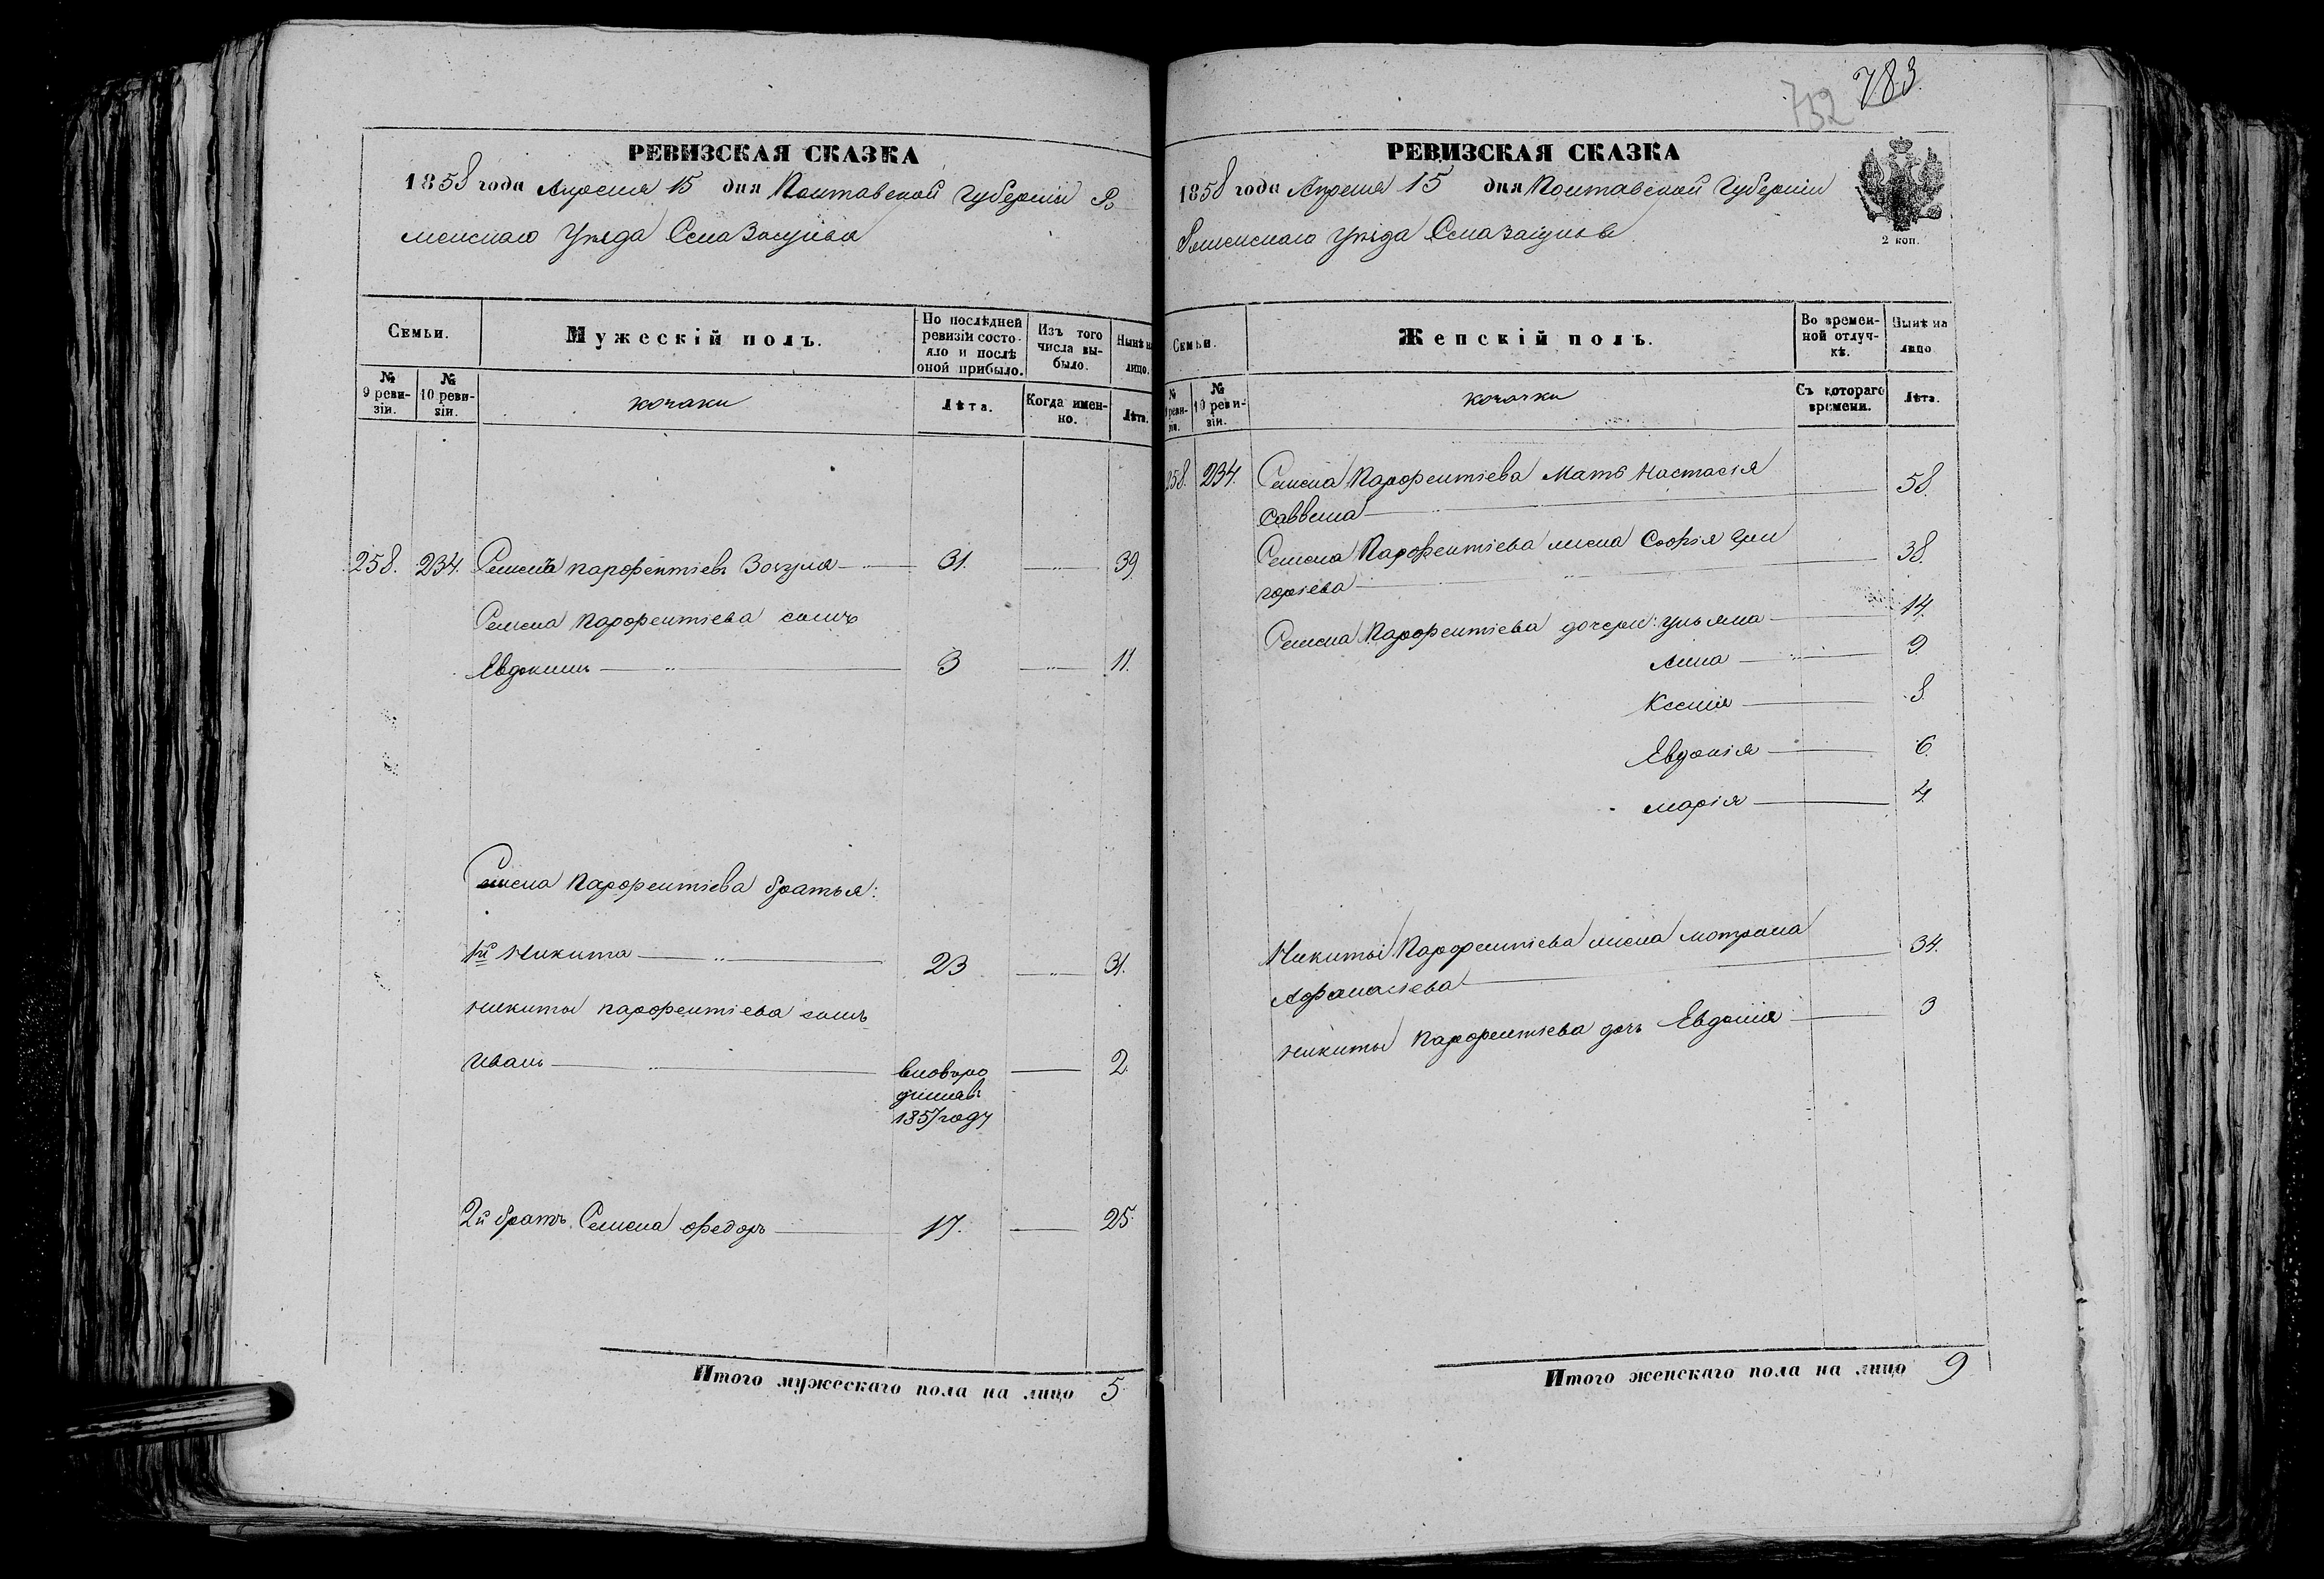 РЕВИЗСКАЯ СКАЗКА
1858 года Апреля 15 дня Полтавской Губерніи Ро
менскаго Уѣзда Села Засулья
Семьи.
Мужескій полъ.
По послѣдней ревизіи состояло и послѣ оной прибыло.
Изъ того числа выбыло.
Нынѣ на лицо.
№ 9 ревизіи.
№ 10 ревизіи.
козаки
Лѣта.
Когда именно.
Лѣта.
258. 234. Семенъ Парфентіевъ Зозуля 31. 39.
Семена Парфентіева сынъ
Евдокимъ 3 11.
Семена Парфентіева братья:
1й Никита 23 31.
Никиты Парфентіева сынъ
Иванъ вновь ро 2.
1857 году
2й братъ Семена Федоръ 17. 25.
Итого мужескаго пола на лицо 5
752 783.
РЕВИЗСКАЯ СКАЗКА
1858 года Апреля 15 дня Полтавской Губерніи
Роменскаго Уѣзда Села Засулья
2 коп.
Семьи.
Женскій полъ.
Во временной отлучкѣ.
Нынѣ на лицо
№ 9 ревизіи.
№ 10 ревизіи.
козачки
Съ котораго времени.
Лѣта.
258. 234. Семена Парфентіева Мать Настасія 58.
Саввина
Семена Парфентіева жена Софія Гри 38.
горіева
Семена Парфентіева дочери: Ульяна 14.
Анна 9.
Ксенія 8.
Евдокія 6.
Марія 4.
Никиты Парфентіева жена Мотрона 34.
Афанасіева
Никиты Парфентіева дочь Евдокія 3
Итого женскаго пола на лицо 9